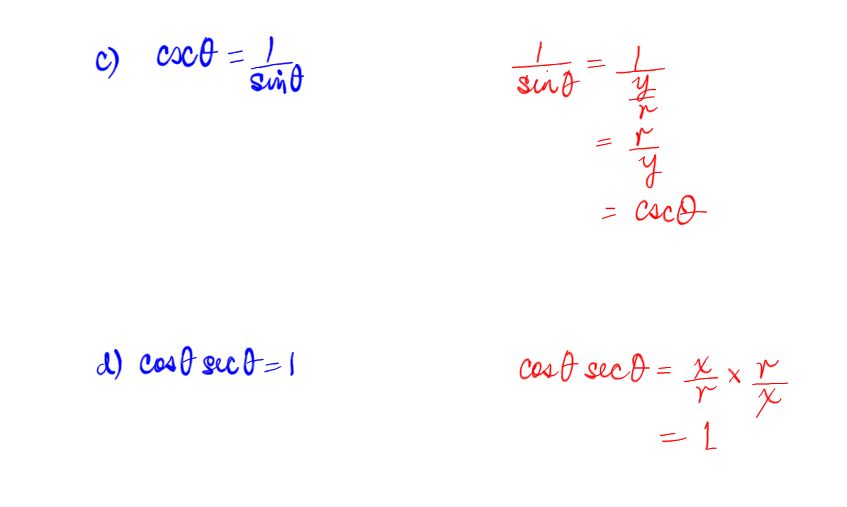 c) cscθ = 1/sinθ
1/sinθ = 1/(y/r)
= r/y
= cscθ
d) cosθ secθ = 1
cosθ secθ = x/r × r/x
= 1